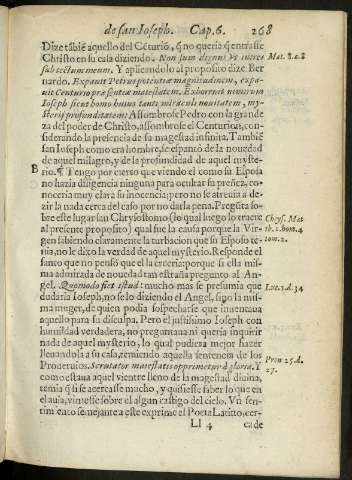 de san Ioseph. Cap. 6. 268
Dize tãbiẽ aquello del Cẽturiõ, q̃ no queria q̃ entrasse
Christo en su casa diziendo. Non sum dignus vt intres
sub tectum meum. Y aplicandolo al proposito dize Ber
nardo. Expauit Petrus potentiæ magnitudinem, expa-
uit Centurio præsentiæ maiestatem. Exhorruit nimirum
Ioseph sicut homo huius tanti miraculi nouitatem, my-
sterij profunditatem: Assombrose Pedro con la grande
za del poder de Christo, assombrose el Centurion, con-
siderando la presencia de su magestad infinita. Tambiẽ
san Ioseph como era hombre, se espantò de la nouedad
de aquel milagro, y de la profundidad de aquel myste-
rio. ¶ Tengo por cierto que viendo el como su Esposa
no hazia diligencia ninguna para ocultar su preñez, co-
noceria muy clara su inocencia; pero no se atreuia a de-
zir la nada cerca del caso por no darla pena. Pregũta so-
bre este lugar san Chrysostomo (lo qual luego lo traere
al presente proposito) qual fue la causa porque la Vir-
gen sabiendo claramente la turbacion que su Esposo te-
nia, no le dixo la verdad de aquel mysterio. Responde el
santo que no pensò que el la creeria: porque si ella mis-
ma admirada de nouedad tan estraña pregunto al An-
gel. Quomodo fiet istud: mucho mas se presumia que
dudaria Ioseph, no se lo diziendo el Angel, sino la mis-
ma muger, de quien podia sospecharse que inuentaua
aquello para su disculpa. Pero el justissimo Ioseph con
humildad verdadera, no preguntaua ni queria inquirir
nada de aquel mysterio, lo qual pudiera mejor hazer
lleuandola a su casa, temiendo aquella sentencia de los
Prouerbios. Scrutator maiestatis opprimetur à gloria. Y
como estaua aquel vientre lleno de la magestad diuina,
temia q̃ si se acercasse mucho, y quisiesse saber lo que en
el auia, viniesse sobre el algun castigo del cielo. Vn sen-
timiento semejante a este exprime el Poeta Latino, cer-
Ll 4 ca de
Mat. 8. c. 8
B
Chrys. Mat
th. 1. hom. 4
tom. 2.
Luc. 1. d. 34
Prou 25. d.
27.